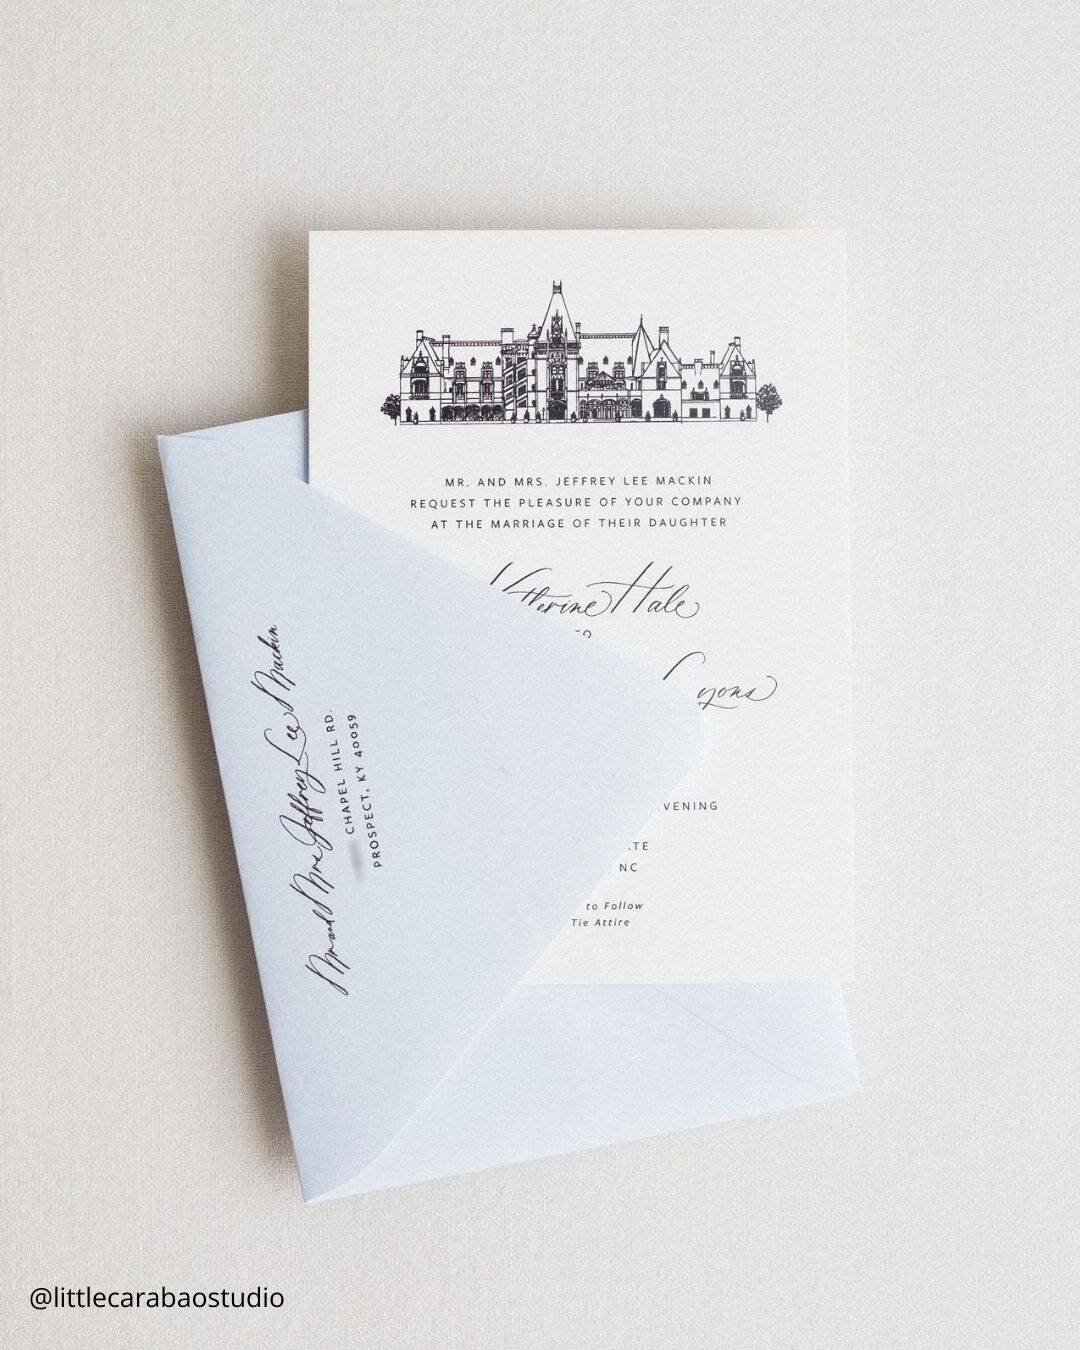 MR. AND MRS. JEFFREY LEE MACKIN
REQUEST THE PLEASURE OF YOUR COMPANY
AT THE MARRIAGE OF THEIR DAUGHTER
Katherine Hale
TO
Lyons
EVENING
NC
to Follow
Tie Attire
Mr. and Mrs. Jeffrey Lee Mackin
CHAPEL HILL RD.
PROSPECT, KY 40059
@littlecarabaostudio